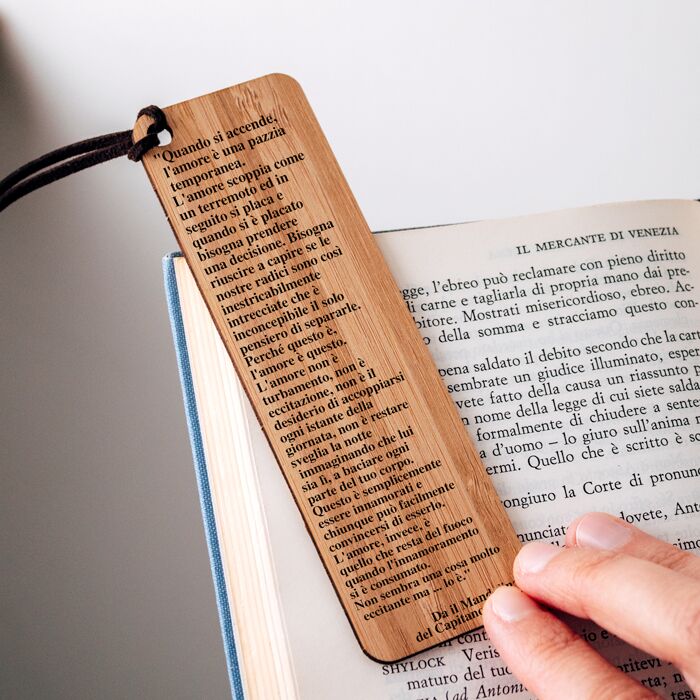 "Quando si accende,
l'amore è una pazzia
temporanea.
L'amore scoppia come
un terremoto ed in
seguito si placa e
quando si è placato
bisogna prendere
una decisione. Bisogna
riuscire a capire se le
nostre radici sono così
inestricabilmente
intrecciate che è
inconcepibile il solo
pensiero di separarle.
Perché questo è,
l'amore è questo.
L'amore non è
turbamento, non è
eccitazione, non è il
desiderio di accoppiarsi
ogni istante della
giornata, non è restare
sveglia la notte
immaginando che lui
sia lì, a baciare ogni
parte del tuo corpo.
Questo è semplicemente
essere innamorati e
chiunque può facilmente
convincersi di esserlo.
L'amore, invece, è
quello che resta del fuoco
quando l'innamoramento
si è consumato.
Non sembra una cosa molto
eccitante ma ... lo è."
Da il
del
IL MERCANTE DI VENEZIA
l'ebreo può reclamare con pieno diritto
di carne e tagliarla di propria mano dai pre-
Mostrati misericordioso, ebreo. Ac-
della somma e stracciamo questo con-
saldato il debito secondo che la cart
sembrate un giudice illuminato, esper
avete fatto della causa un riassunto p
nome della legge di cui siete salda
formalmente di chiudere a sente
d'uomo – lo giuro sull'anima
Quello che è scritto è s
la Corte di pronun
dovete, Anto
SHYLOCK
maturo del
(ad Antonio